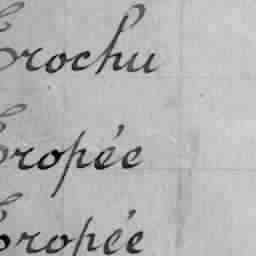 Crochu
Cropée
Cropée